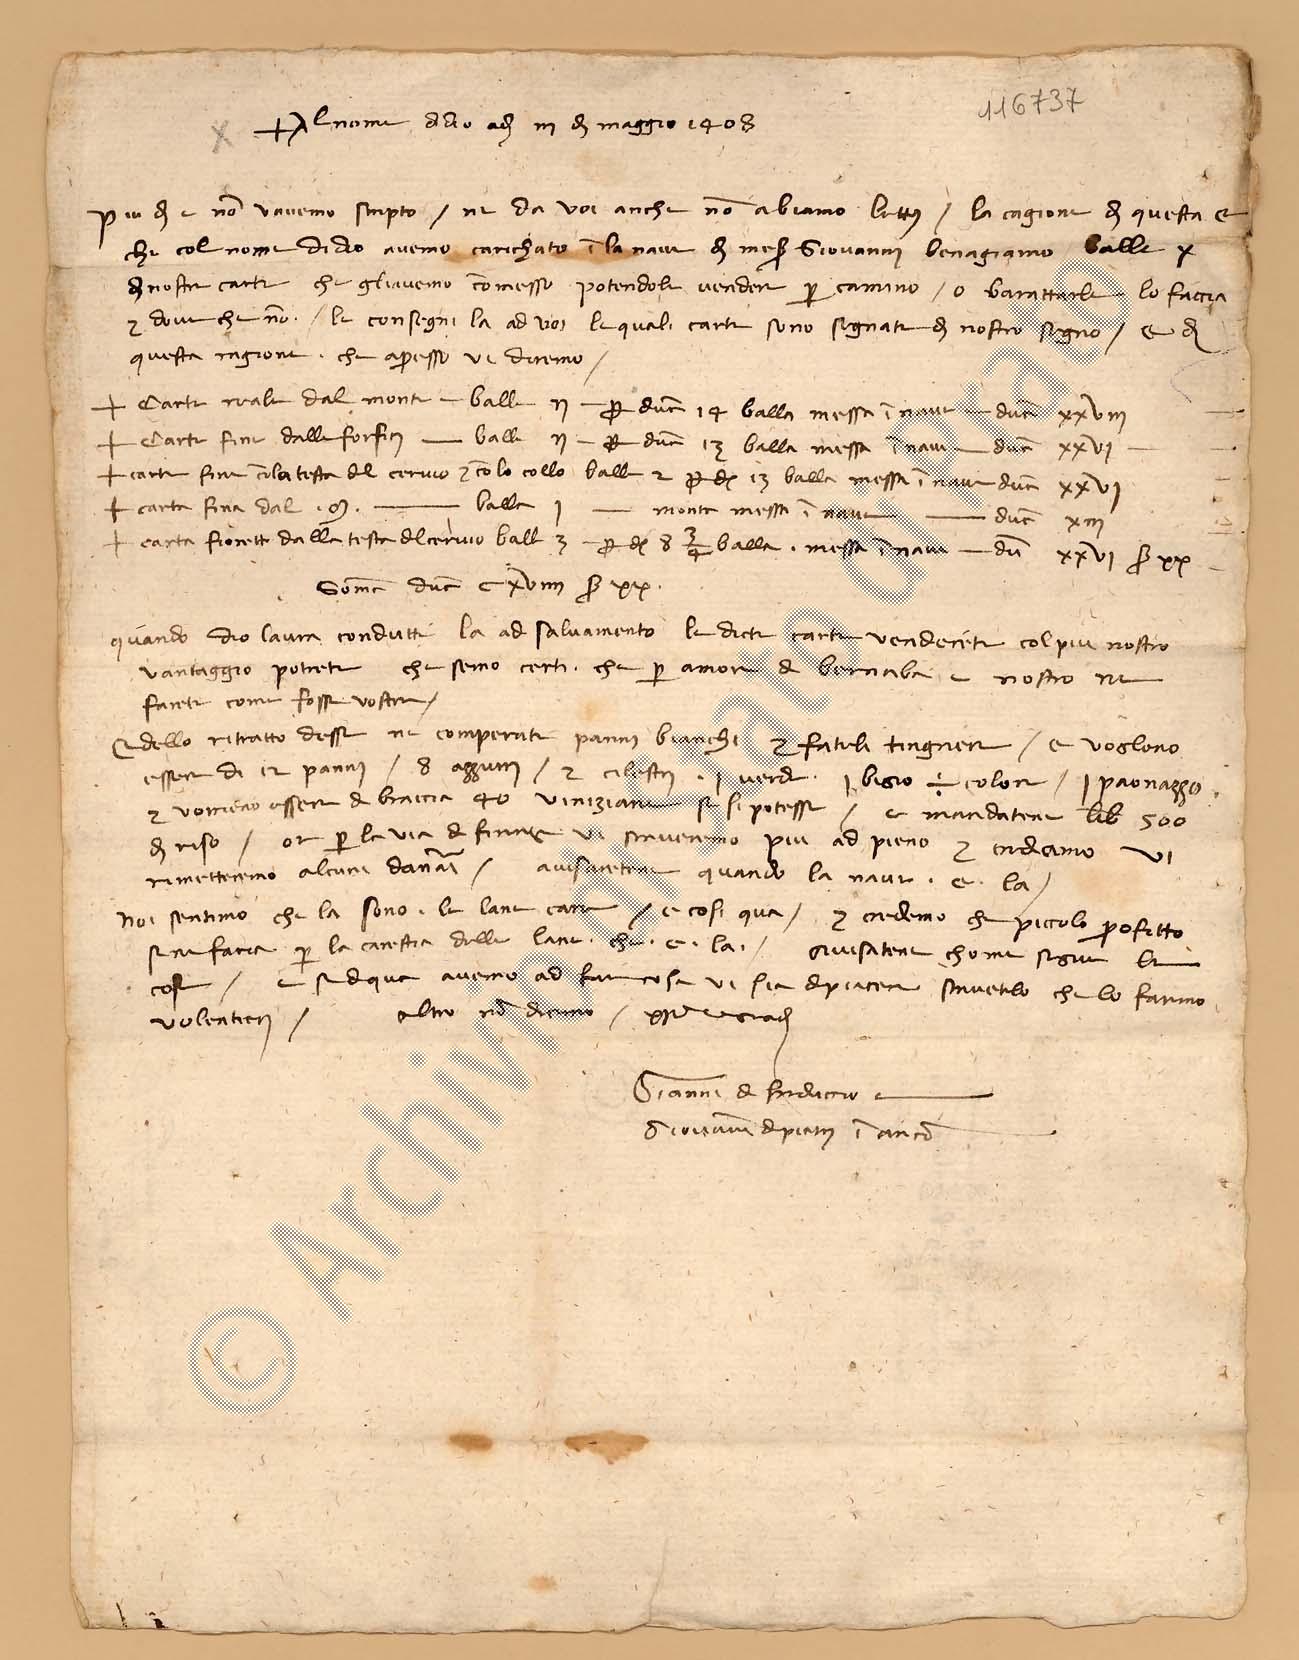 116737
x
+ Al nome di dio adi iii di maggio 1408
Piu di e nō vavemo scripto / ne da voi anche nō abiamo letti / la cagione di questa e
che col nome di dio avemo carichato ī la nave di mes Giovanni balle x
di nostre carte che gliavemo cōmesso potendole vendere p camino / o barattarle lo faccia
z dove che nō / le consegni la ad voi le quali carte sono segnate di nostro segno / e di
questa ragione . che apresso vi diremo /
+ Carte reale dal monte — balle ii — p duc 14 balla messa ī nave — duc xxviii
+ Carte fine dalle forfici — balle ii — p duc 13 balla messa ī nave — duc xxvi —
+ carte fine cōla testa del cervio z cōlo collo balle 2 p d 13 balla messa ī nave duc xxvi
+ carta fina dal — balla i — monta messa ī nave — duc xiii
+ carta fioretta dalla testa del cervio balle 3 — p d 8 3/4 balla . messa ī nave — duc xxvi s xx
Som duc cxviiii s xx .
quando dio lavra condutte la ad salvamento le dicte carte vendecete col piu nostro
vantaggio potrete che semo certi . che p amore di bernaba e nostro ne
farete come fosse vostre /
E dello ritratto desse ne comperate panni bianchi z fateli tingnere / e voglono
essere di 12 panni / 8 azzurri / z cilestri . i verde . i bigio colore / i paonazzo .
z vorrieno essere di braccia 40 viniziane se si potesse / e mandatene lib 500
di riso / or p la via di firenze vi scriveremo piu ad pieno z crediamo vi
rimetteremo alcuni danari / avisarete quando la nave . e . la /
Noi sentimo che la sono . le lane care / e cosi qua / z credemo che piccolo profitto
se ne faccia p la carestia delle lane . che . e . la . / avisatene chome segue le
cose / e se di qua avemo ad fare cosa vi sia di piacere scrivetelo che lo faremo
volentieri / altro nō dicemo /
Gianni di e —
Giovanni di pietri ī ancō
© Archivio di Stato di Prato